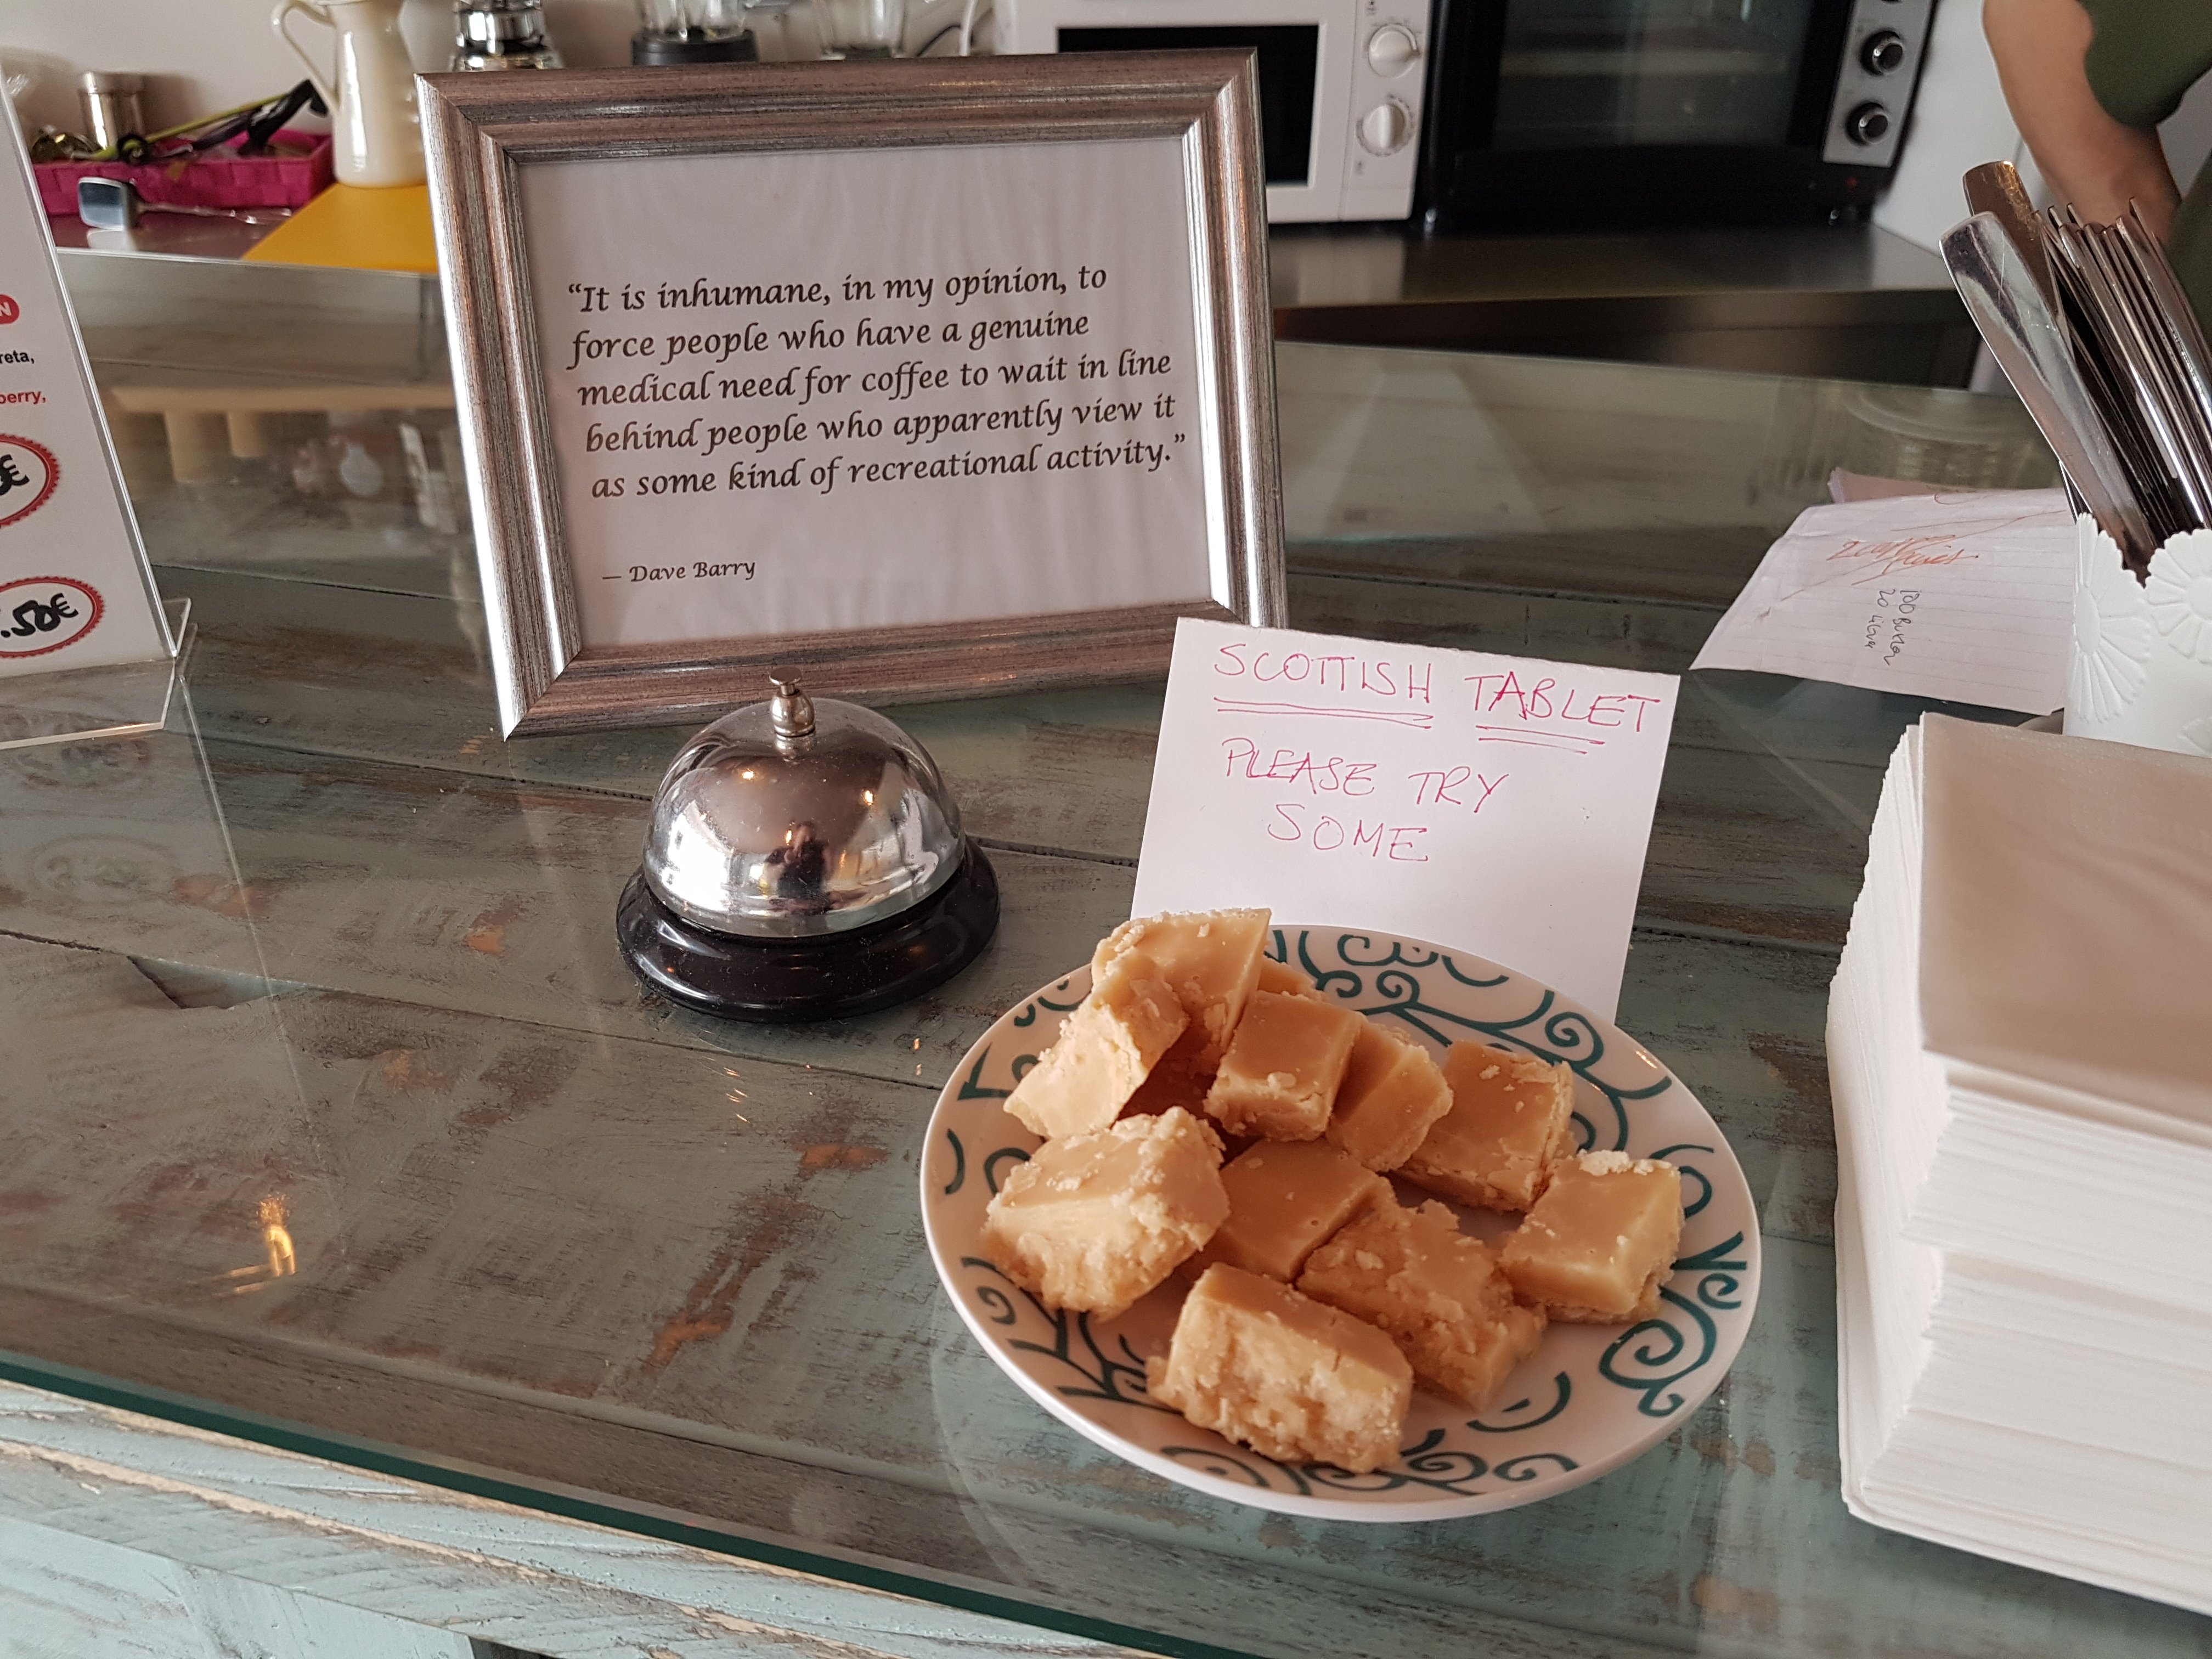 “It is inhumane, in my opinion, to
force people who have a genuine
medical need for coffee to wait in line
behind people who apparently view it
as some kind of recreational activity.”
— Dave Barry
SCOTTISH TABLET
PLEASE TRY
SOME
reta,
berry,
.50€